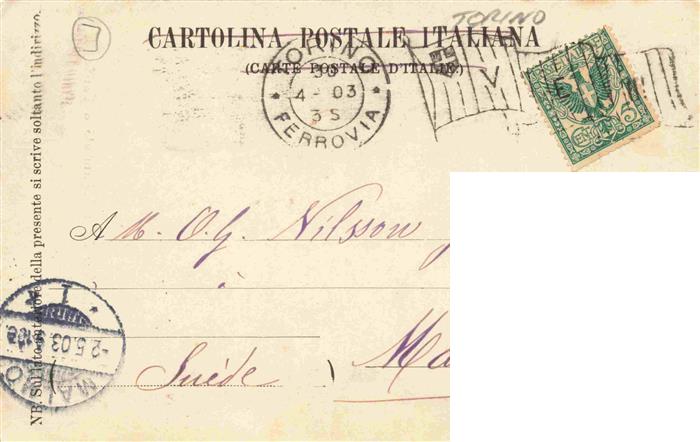 TORINO
CARTOLINA POSTALE ITALIANA
(CARTE POSTALE D'ITALIE.)
TORINO
30
4-03
3S
FERROVIA
CENT. 5
NB. Sul lato anteriore della presente si scrive soltanto l'indirizzo.
A M. O. G. Nilsson
à
Ma
Suède
MALMÖ
2.5.03